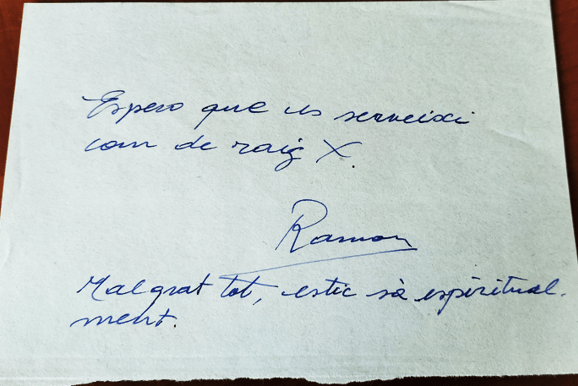 Espero que us serveixi
com de raig X.
Ramon
Malgrat tot, estic sà espiritual-
ment.